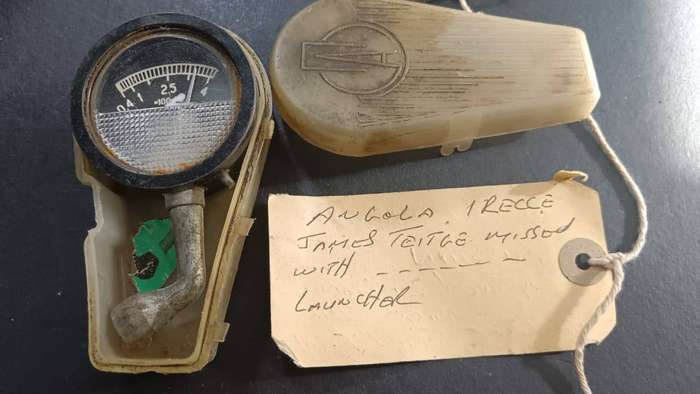 0,4 1 2,5 4
×100
ANGOLA. 1 RECCE
JAMES TEITGE MISSED
WITH - - - - - -
LAUNCHER